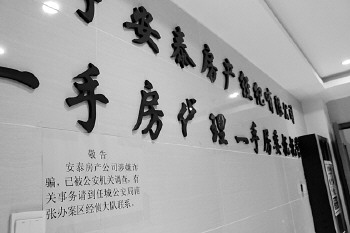 于安泰房产经纪有限公司
一手房代理一手房
敬告
安泰房产公司涉嫌诈
骗，已被公安机关调查，有
关事务请到任城公安局南
张办案区经侦大队联系。